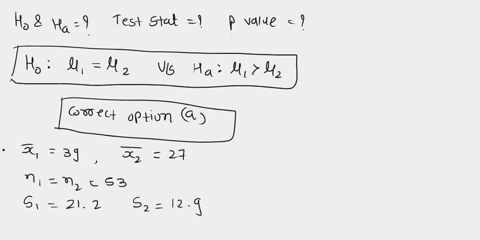 H₀ & Ha = ? Test Stat = ? P value = ?
H₀ : μ₁ = μ₂ V/S Ha : μ₁ > μ₂
correct option (a)
. x̄₁ = 39 , x̄₂ = 27
n₁ = n₂ = 53
S₁ = 21.2 S₂ = 12.9